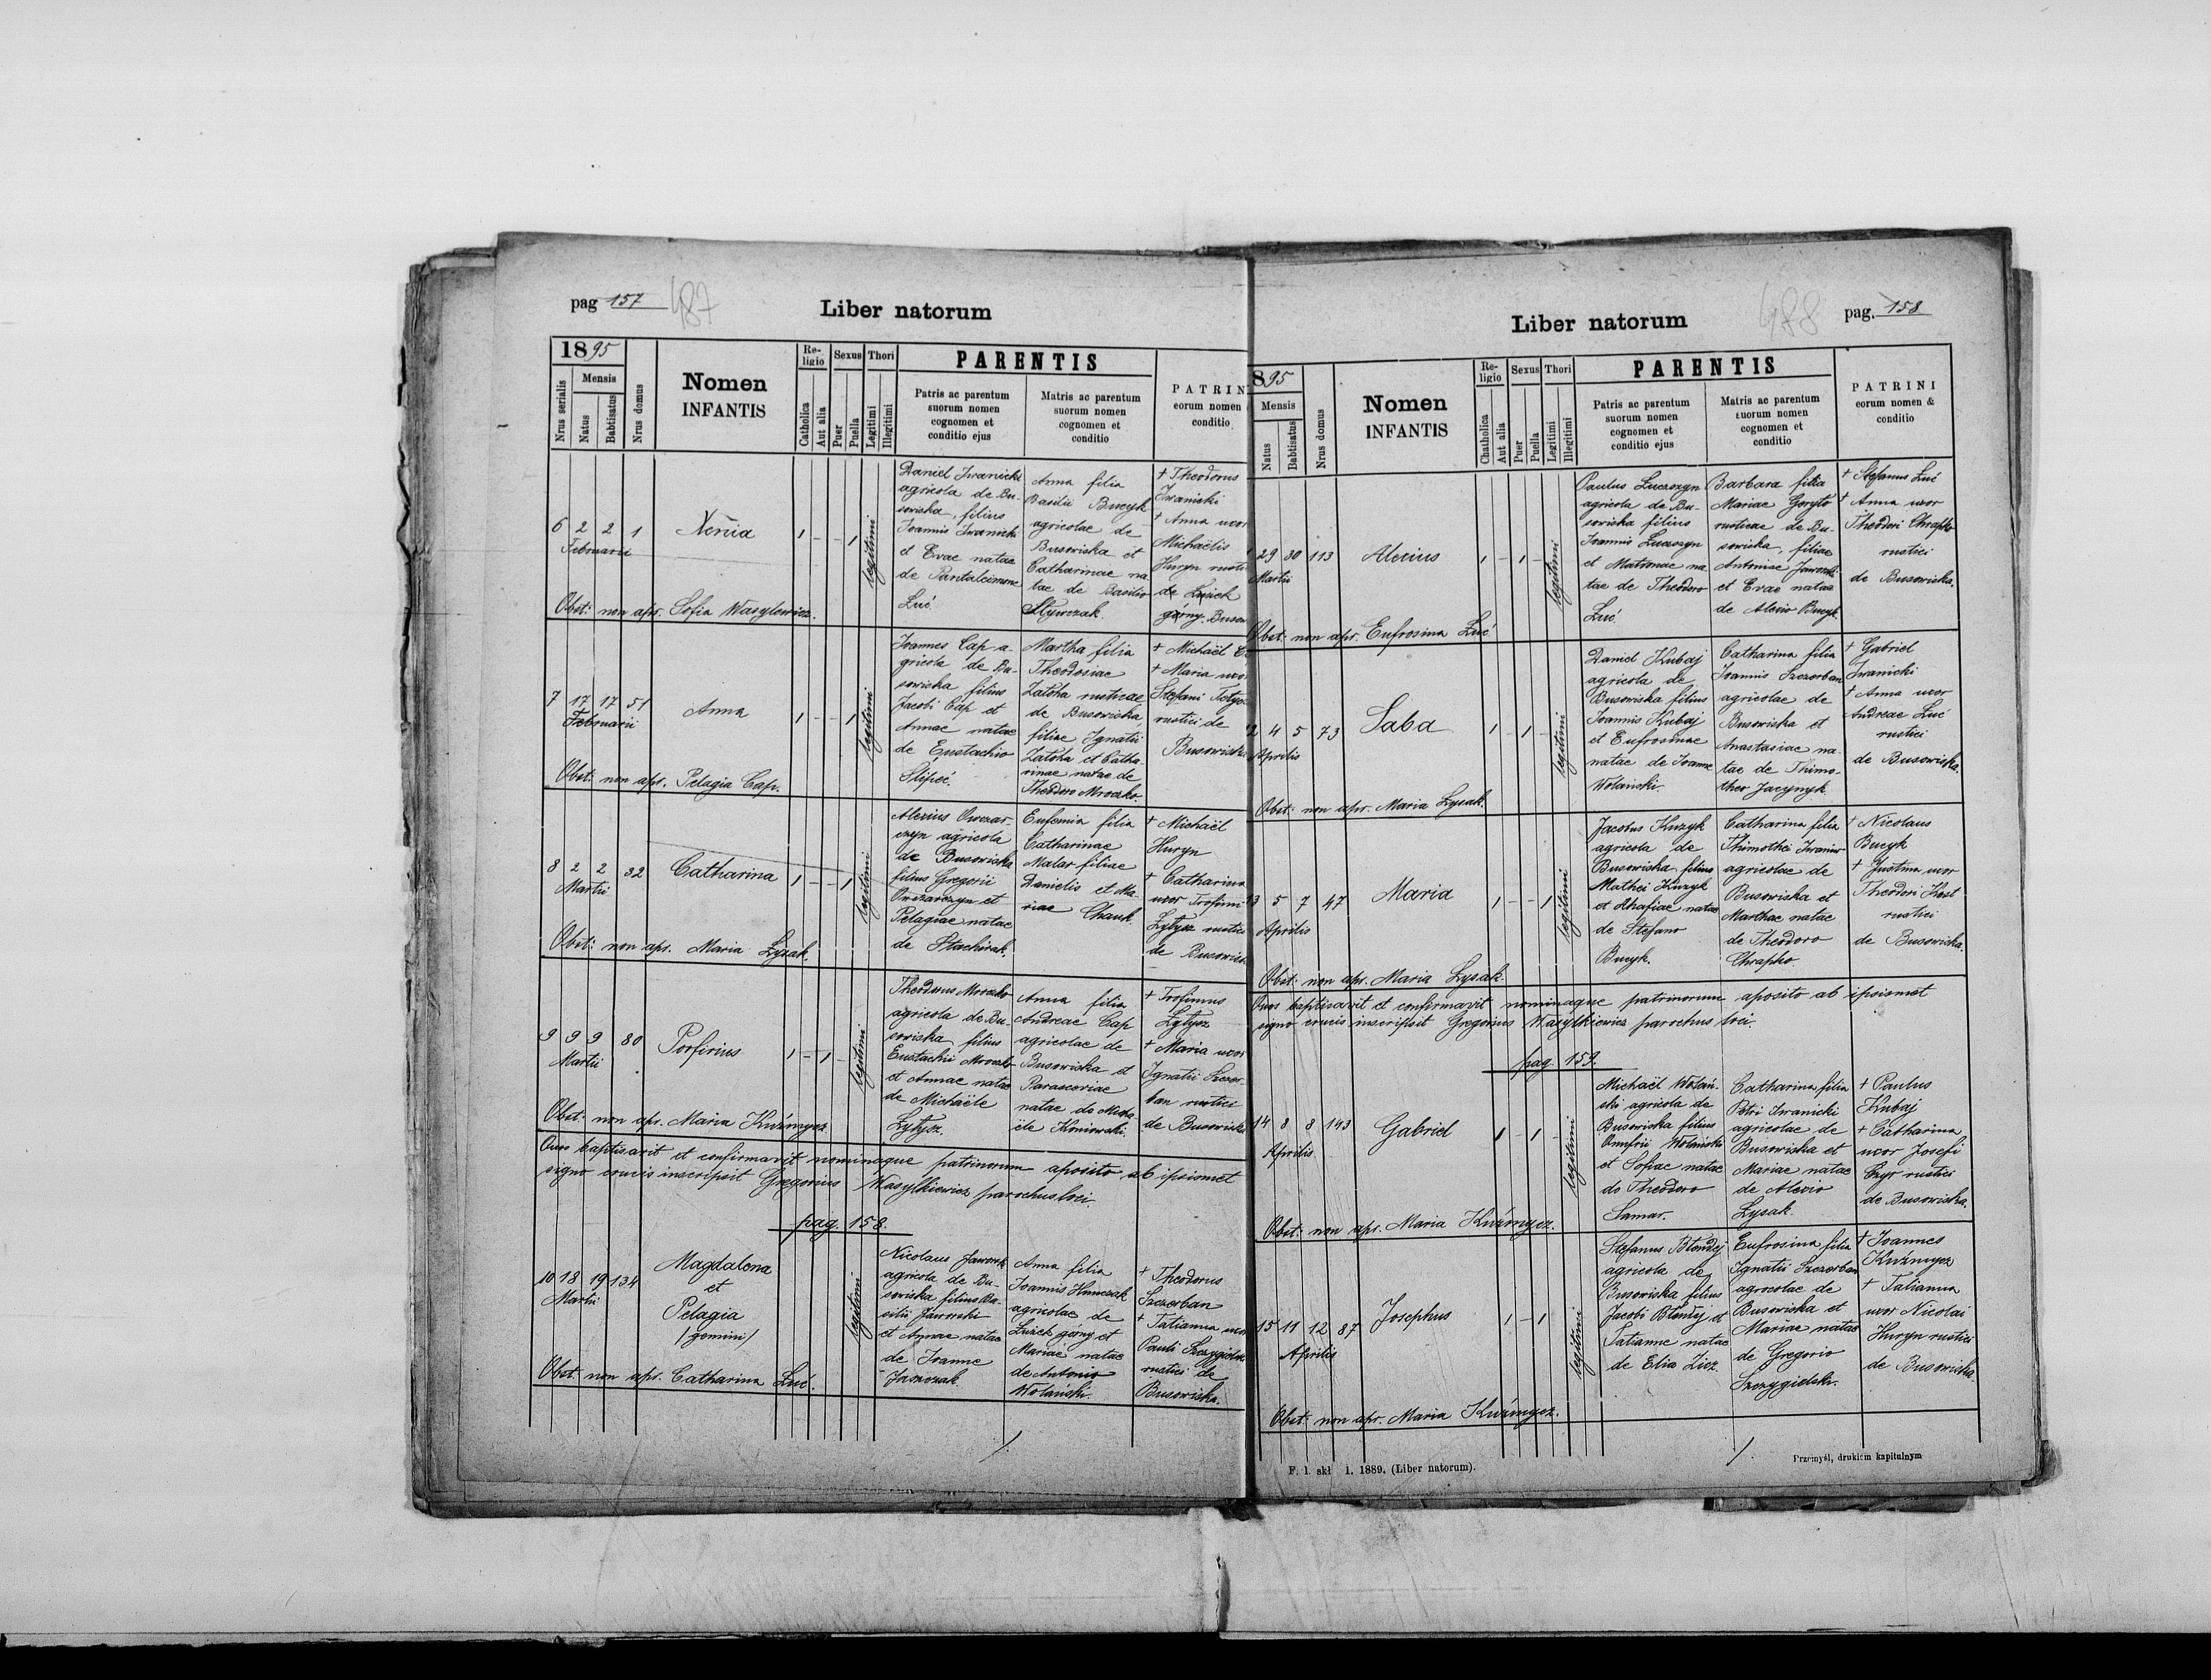 pag 157 487
Liber natorum
1895
Nrus serialis
Mensis
Natus
Babtisatus
Nrus domus
Nomen
INFANTIS
Re-
ligio
Catholica
Aut alia
Sexus
Puer
Puella
Thori
Legitimi
Illegitimi
PARENTIS
Patris ac parentum
suorum nomen
cognomen et
conditio ejus
Matris ac parentum
suorum nomen
cognomen et
conditio
PATRIN
eorum nomen
conditio
6 2 2 1
Februarii
Xenia
1 - - 1
legitimi
Daniel Iwanicki
agricola de Bu-
sowiska, filius
Joannis Iwanicki
et Evae natae
de Pantaleimone
Luć
Anna filia
Basilii Bucyk
agricolae de
Busowiska et
Catharinae na
tae de Basilio
† Theodorus
Iwanicki
† Anna uxor
Michaëlis
Huryn rusti
de Łużek
górny Busow
Obst: non apr. Sofia Wasylewicz.
7 17 17 51
Februarii
Anna
1 - - 1
legitimi
Joannes Cap a-
gricola de Bu-
sowiska filius
Jacobi Cap et
Annae natae
de Eustachio
Slipeć.
Martha filia
Theodosiae
Zatoka rusticae
de Busowiska
filiae Ignatii
Zatoka et Catha-
rinae natae de
Theodoro Mroczko.
† Michaël C
† Maria uxo
Stefani
rustici de
Busowiska
Obst: non apr. Pelagia Cap.
8 2 2 32
Martii
Catharina
1 - - 1
legitimi
Alexius Owczar-
czyn agricola
de Busowiska
filius Gregorii
Owczarczyn et
Pelagiae natae
de Stachirak.
Eufemia filia
Catharinae
Malar filiae
Danielis et Ma-
riae Chauk.
† Michaël
Huryn
† Catharina
uxor Trofimi
Łytysz rustici
de Busowisk
Obst: non apr. Maria Łysak.
9 9 9 80
Martii
Porfirius
1 - 1 -
legitimi
Theodorus Mroczko
agricola de Bu-
sowiska filius
Eustachii Mroczko
et Annae natae
de Michaële
Łytysz.
Anna filia
Andreae Cap
agricolae de
Busowiska et
Parasceviae
natae de Micha-
ële Koniowski.
† Trofimus
Łytysz
† Maria uxor
Ignatii Szczer-
ban rustici
de Busowiska
Obst: non apr. Maria Kuźmycz
Quos baptisavit et confirmavit nominaque patrinorum aposito ab ipsismet
signo crucis inscripsit Gregorius Wasylkiewicz parochus loci.
pag. 158.
10 18 19 134
Martii
Magdalena
et
Pelagia
/gemini/
legitimi
Nicolaus Jaworsk
agricola de Bu-
sowiska filius Ba-
silii Jaworski
et Annae natae
de Joanne
Jaszczak.
Anna filia
Joannis Hunczak
agricolae de
Łużek górny et
Mariae natae
de Antonio
Wolański.
† Theodorus
Szczerban
† Tatianna uxor
Pauli Szczygielski
rustici de
Busowiska.
Obst: non apr. Catharina Luć.
Liber natorum
488 pag. 158
895
Mensis
Natus
Babtisatus
Nrus domus
Nomen
INFANTIS
Re-
ligio
Chatholica
Aut alia
Sexus
Puer
Puella
Thori
Legitimi
Illegitimi
PARENTIS
Patris ac parentum
suorum nomen
cognomen et
conditio ejus
Matris ac parentum
suorum nomen
cognomen et
conditio
PATRINI
eorum nomen &
conditio
29 30 113
Martii
Alexius
1 - 1 -
legitimi
Paulus Luczczyn
agricola de Bu-
sowiska filius
Joannis Luczczyn
et Matronae na
tae de Theodoro
Luć
Barbara filia
Mariae Goryło
rusticae de Bu-
sowiska, filiae
Antonise Jaworski
et Evae natae
de Alexio Bucyk.
† Stefanus Luć
† Anna uxor
Theodori Chrapko
rustici
de Busowiska.
Obst: non apr. Eufrosina Luć
12 4 5 73
Aprilis
Saba
1 - 1 -
legitimi
Daniel Kubaj
agricola de
Busowiska filius
Joannis Kubaj
et Eufrosinae
natae de Joanne
Wolański.
Catharina filia
Joannis Szczerban
agricolae de
Busowiska et
Anastasiae na-
tae de Thimo-
theo Jacynyk.
† Gabriel
Iwanicki
† Anna uxor
Andreae Luć
rustici
de Busowiska.
Obst: non apr. Maria Łysak.
13 5 7 47
Aprilis
Maria
1 - - 1
legitimi
Jacobus Kuzyk
agricola de
Busowiska filius
Mathei Kuzyk
et Ahafiae natae
de Stefano
Bucyk.
Catharina filia
Thimothei
agricolae de
Busowiska et
Marthae natae
de Theodoro
Chrapko
† Nicolaus
Bucyk
† Justina uxor
Theodori Kost
rustici
de Busowiska.
Obst: non apr. Maria Łysak.
Quos baptisavit et confirmavit nominaque patrinorum aposito ab ipsismet
signo crucis inscripsit Gregorius Wasylkiewicz parochus loci.
pag. 159.
14 8 8 143
Aprilis
Gabriel
1 - 1 -
legitimi
Michaël Wolań-
ski agricola de
Busowiska filius
Onufrii Wolański
et Sofiae natae
de Theodoro
Samar.
Catharina filia
Petri Iwanicki
agricolae de
Busowiska et
Mariae natae
de Alexio
Łysak.
† Paulus
Kubaj
† Catharina
uxor Josefi
rustici
de Busowiska.
Obst: non apr. Maria Kuźmycz.
15 11 12 87
Aprilis
Josephus
1 - 1
legitimi
Stefanus Błondej
agricola de
Busowiska filius
Jacobi Błondej et
Tatianne natae
de Elia Licz.
Eufrosina filia
Ignatii Szczerban
agrocolae de
Busowiska et
Mariae natae
de Gregorio
Szczygielski.
† Joannes
Kuźmycz
† Tatianna
uxor Nicolai
Huryn rustici
de Busowiska.
Obst: non apr. Maria Kuźmycz.
F. 1. skł 1. 1889. (Liber natorum).
Przemyśl, drukiem kapitulnym